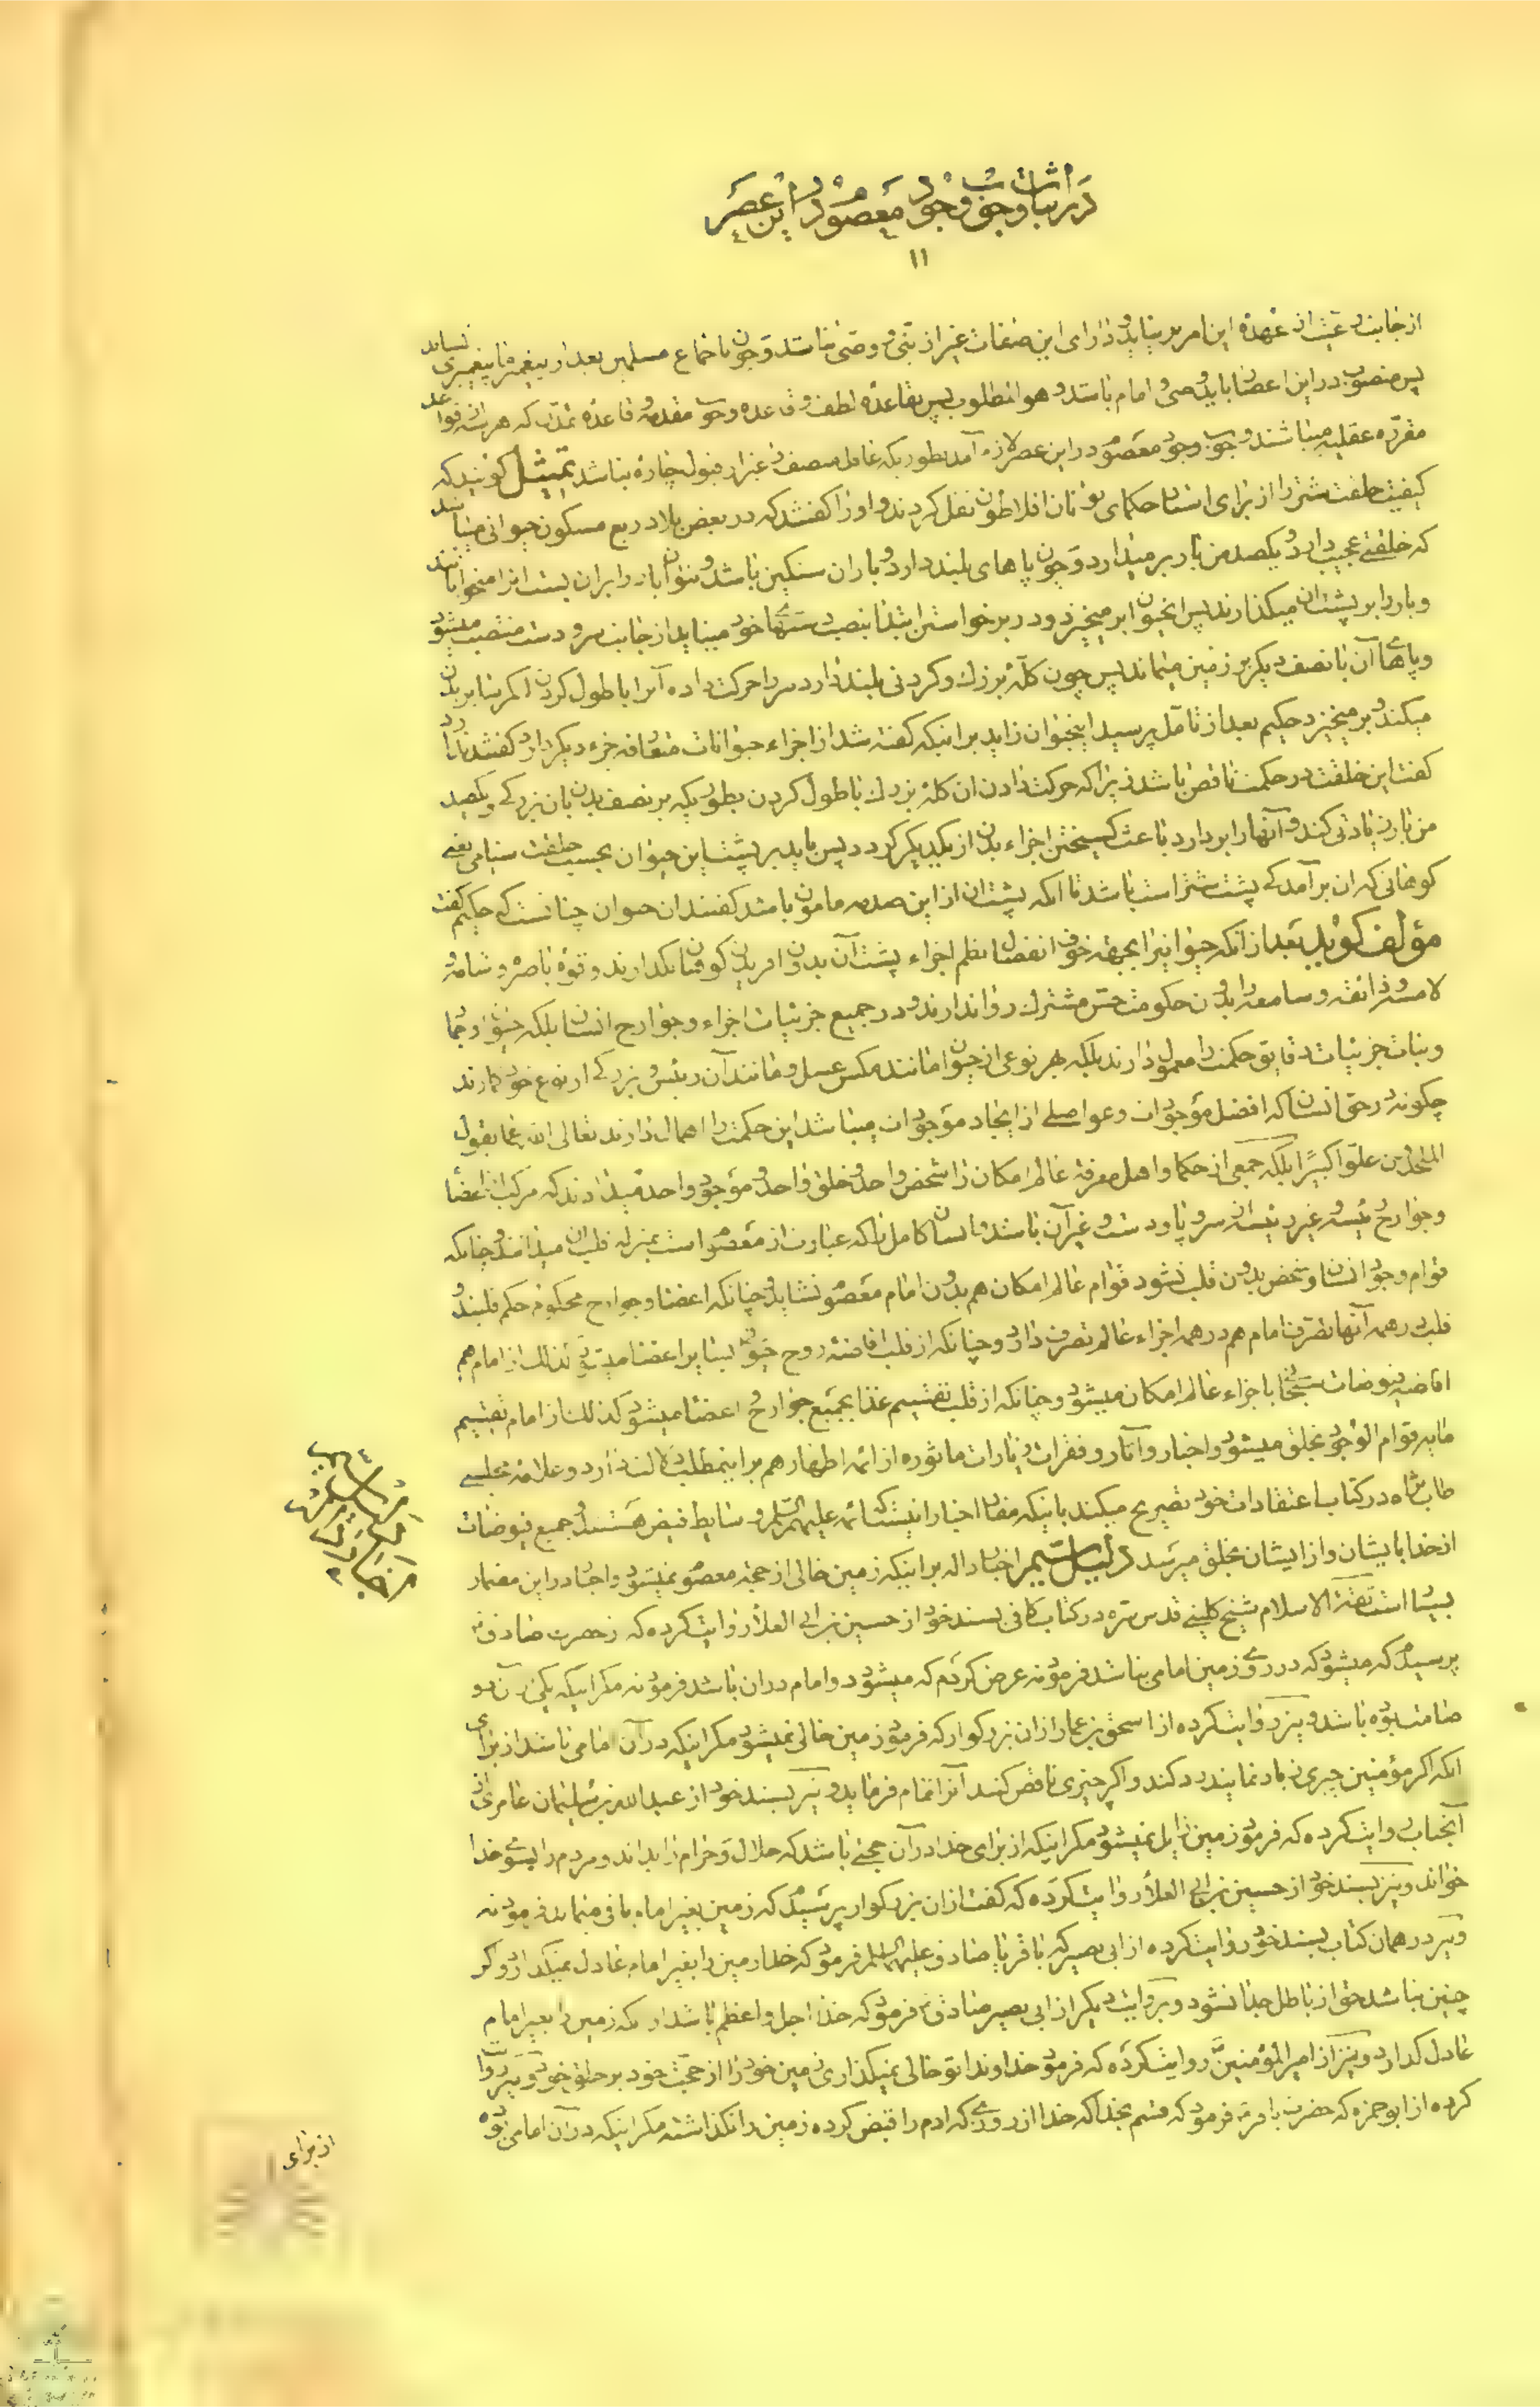 در اثبات وجوب وجود معصوم در این عصر
۱۱
از جانب رعیت از عهده این امر بر نیاید و دارای این صفات غیر از نبی و وصی نباشد و چون باجماع مسلمین بعد از پیغمبر ما پیغمبری نیاید
پس منصوب در این اعصار باید وصی و امام باشد و هو المطلوب پس بقاعده لطف و قاعده وجوب مقدمه و قاعده تمدن که هر سه از قواعد
مقرره عقلیه میباشند وجوب وجود معصوم در این عصر لازم آمد بطوریکه عاقل منصف را غیر از قبول چاره نباشد تمثیل گویند که
کیفیت خلقت شتر را از برای استاد حکمای یونان افلاطون نقل کردند و او را گفتند که در بعض بلاد ربع مسکون حیوانی میباشد
که خلقتی عجیب دارد و یکصد من بار بر میدارد و چون پاهای بلند دارد و بار آن سنگین باشد و نتوان بار را بر آن بست آنرا میخوابانند
و بار را بر پشت آن میگذارند پس آنحیوان بر میخیزد و در برخواستن ابتدا بنصب دستهای خود مینماید از جانب سر و دست منتصب میشود
و پاهای آن با نصف دیگر بر زمین میماند پس چون کله بزرگ و گردنی بلند دارد سر را حرکت داده آنرا با طول گردن اکمر بنا بر بدن
میکند و بر میخیزد حکیم بعد از تأمل پرسید اینحیوان زاید بر اینکه گفته شد از اجزاء حیوانات متعارفه جزء دیگر دارد گفتند ندارد
گفت این خلقت در حکمت ناقص باشد زیرا که حرکت دادن آن کله بزرگ با طول گردن بطوریکه بر نصف بدن بآن بزرگی و یکصد
من بار زیادتی کند و آنها را بر دارد باعث گسیختن اجزاء بدن از یکدیگر گردد پس باید بر پشت این حیوان بحسب خلقت سنامی یعنی
کوهانی که آن بر آمدگی پشت شتر است باشد تا آنکه پشت آن از این صدمه مامون باشد گفتند آن حیوان چنانست که حکیم گفت
مؤلف گوید بعد از آنکه حیوانیرا بجهة خوف انفصال نظم اجزاء پشت آن بدون آفریدن کوهان نگذارند و قوه باصره و شامه و
لامسه و ذائقه و سامعه را بدون حکومت حس مشترک روا ندارند و در جمیع جزئیات اجزاء و جوارح انسان بلکه حیوان و جماد
و نبات جزئیات دقایق حکمت را معمول دارند بلکه بهر نوعی از حیوان مانند مگس عسل و مانند آن رئیس و بزرگی از نوع خود گمارند
چگونه در حق انسان که افضل موجودات و عوا اصلی از ایجاد موجودات میباشد این حکمت را اهمال دارند تعالی الله عما یقول
الملحدون علوا کبیرا بلکه جمعی از حکما و اهل معرفة عالم امکان را شخص واحد و خلق واحد و موجود واحد میدانند که مرکب از اعضا
و جوارح رئیسه و غیر رئیسه از سر و پا و دست و غیر آن باشد و انسان کامل را که عبارت از معصوم است بمنزله قلب آن میدانند و چنانکه
قوام وجود انسان و شخص بدون قلب نشود قوام عالم امکان هم بدون امام معصوم نشاید و چنانکه اعضا و جوارح محکوم حکم قلبند و
قلب در همه آنها تصرف امام هم در همه اجزاء عالم تصرف دارد و چنانکه از قلب افاضه روح حیوة بسایر اعضا میشود کذلک از امام هم
افاضه فیوضات سبحانی باجزاء عالم امکان میشود و چنانکه از قلب تقسیم غذا بجمیع جوارح و اعضا میشود کذلک از امام تقسیم
ما به قوام الوجود بخلق میشود و اخبار و آثار و فقرات زیارات ماثوره از ائمه اطهار هم بر اینمطلب دلالت دارد و علامه مجلسی
طاب ثراه در کتاب اعتقادات خود تصریح میکند باینکه مفاد اخبار اینست که ائمه علیهم السلام وسایط فیض هستند و جمیع فیوضات
از خدا بایشان و از ایشان بخلق میرسد دلیل ششم اخبار داله بر اینکه زمین خالی از حجة معصوم نمیشود و اخبار در این مضمار
بسیار است ثقة الاسلام شیخ کلینی قدس سره در کتاب کافی بسند خود از حسین بن ابی العلاء روایت کرده که از حضرت صادق ع
پرسیدم که میشود که در روی زمین امامی نباشد فرمود نه عرض کردم که میشود دو امام در آن باشد فرمود نه مگر اینکه یکی از آن دو
صامت بوده باشد و نیز روایت کرده از اسحق بن عمار از آن بزرگوار که فرمود زمین خالی نمیشود مگر اینکه در آن امامی باشد از برای
آنکه اگر مؤمنین چیزی زیاد نمایند رد کند و اگر چیزی ناقص کنند آنرا تمام فرماید و نیز بسند خود از عبدالله بن سلیمان عامری از
آنجناب روایت کرده که فرمود زمین زایل نمیشود مگر اینکه از برای خدا در آن حجتی باشد که حلال و حرام را بداند و مردم را بسوی خدا
خواند و نیز بسند خود از حسین بن ابی العلاء روایت کرده که گفت از آن بزرگوار پرسیدم که زمین بغیر امام باقی میماند فرمود نه
و نیز در همان کتاب بسند خود روایت کرده از ابی بصیر که باقر یا صادق علیهما السلام فرمود که خدا زمین را بغیر امام عادل نمیگذارد و گر
چنین نباشد حق از باطل جدا نشود و بروایت دیگر از ابی بصیر صادق ع فرمود که خدا اجل و اعظم باشد از آنکه زمین را بغیر امام
عادل گذارد و نیز از امیر المؤمنین ع روایت کرده که فرمود خداوندا تو خالی نمیگذاری زمین خود را از حجت خود بر خلق خود و نیز روایت
کرده از ابو حمزه که حضرت باقر ع فرمود که قسم بخدا که خدا از روزی که آدم را قبض کرده زمین را نگذاشته مگر اینکه در آن امامی بوده
از برای